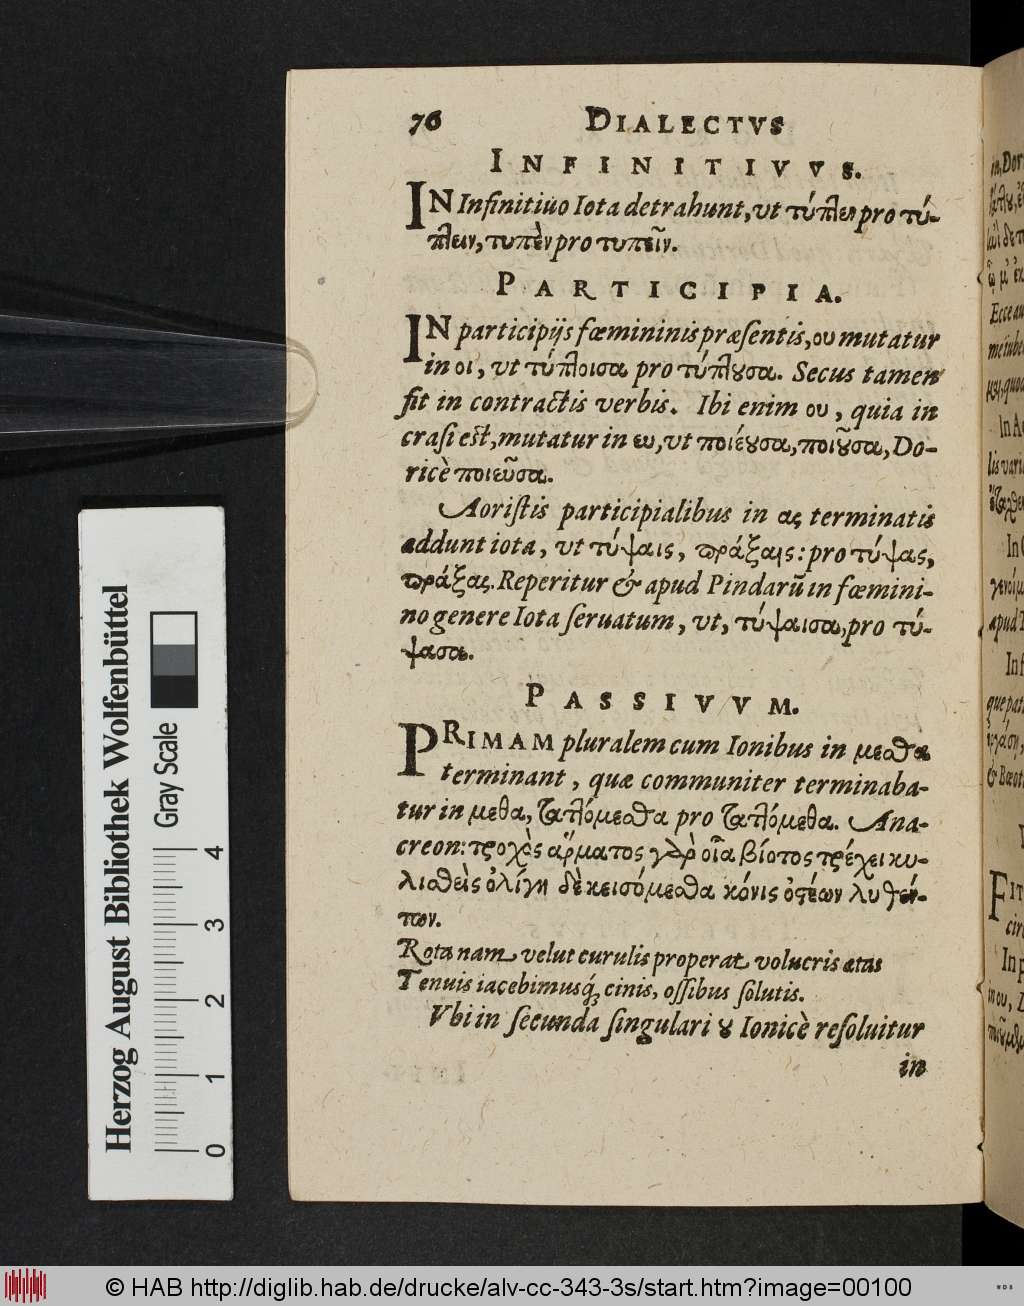 76 DIALECTVS
INFINITIVVS.
IN Infinitiuo Iota detrahunt, vt τύπλεν pro τύ-
πλειν, τυπὲν pro τυπεῖν.
PARTICIPIA.
IN participijs fœmininis præsentis, ου mutatur
in οι, vt τύπλοισα pro τύπλουσα. Secus tamen
fit in contractis verbis. Ibi enim ου, quia in
crasi est, mutatur in ευ, vt ποιέουσα, ποιοῦσα, Do-
ricè ποιεῦσα.
Aoristis participialibus in ας terminatis
addunt iota, vt τύψαις, πράξαις: pro τύψας,
πράξας. Reperitur & apud Pindarū in fœmini-
no genere Iota seruatum, vt, τύψαισα, pro τύ-
ψασα.
PASSIVVM.
PRIMAM pluralem cum Ionibus in μεσθα
terminant, quæ communiter terminaba-
tur in μεθα, ταπλόμεσθα pro ταπλόμεθα. Ana-
creon: τροχὸς ἅρματος γὰρ οἷα βίοτος τρέχει κυ-
λισθεὶς ὀλίγη δὲ κεισόμεσθα κόνις ὀστέων λυθέν-
των.
Rota nam velut curulis properat volucris ætas
Tenuis iacebimusq́; cinis, ossibus solutis.
Vbi in secunda singulari ου Ionicè resoluitur
in
in, Dor
Ecce au
me iube
quod
In A
lis varia
In
apud
In f
que pat
& Bœot
FIT
cir
In p
in ου,
Herzog August Bibliothek Wolfenbüttel
Gray Scale
0 1 2 3 4
© HAB http://diglib.hab.de/drucke/alv-cc-343-3s/start.htm?image=00100